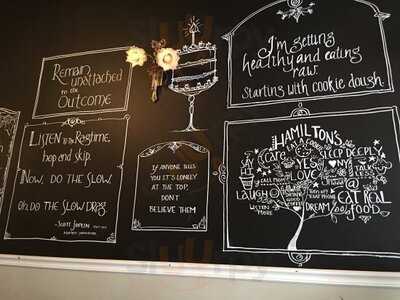 REMAIN
UNATTACHED
TO THE
OUTCOME
LISTEN TO RAGTIME,
HOP AND SKIP.
NOW, DO THE SLOW,
OH, DO THE SLOW DRAG.
SCOTT JOPLIN
IF ANYONE TELLS
YOU IT'S LONELY
AT THE TOP,
DON'T
BELIEVE THEM
HAMILTON'S
I'M GETTING
HEALTHY AND EATING
RAW.
STARTING WITH COOKIE DOUGH.
HAMILTON'S
CARE
EAT A COOKIE
SLEEP DEEPLY
YES
YES
LOVE
LAUGH
LISTEN MORE
DREAM
TURN OFF
THAT PHONE
EAT
REAL
FOOD